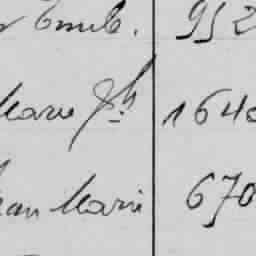 Emile. 952
Marie Jh 1640
Jean Marie 670